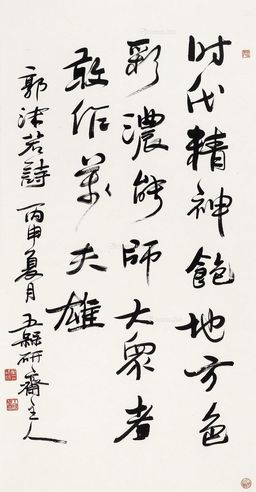 时代精神饱地方色
彩浓能師大眾者
敢作萬夫雄
郭沫若詩 丙申夏月 五緣研齋主人